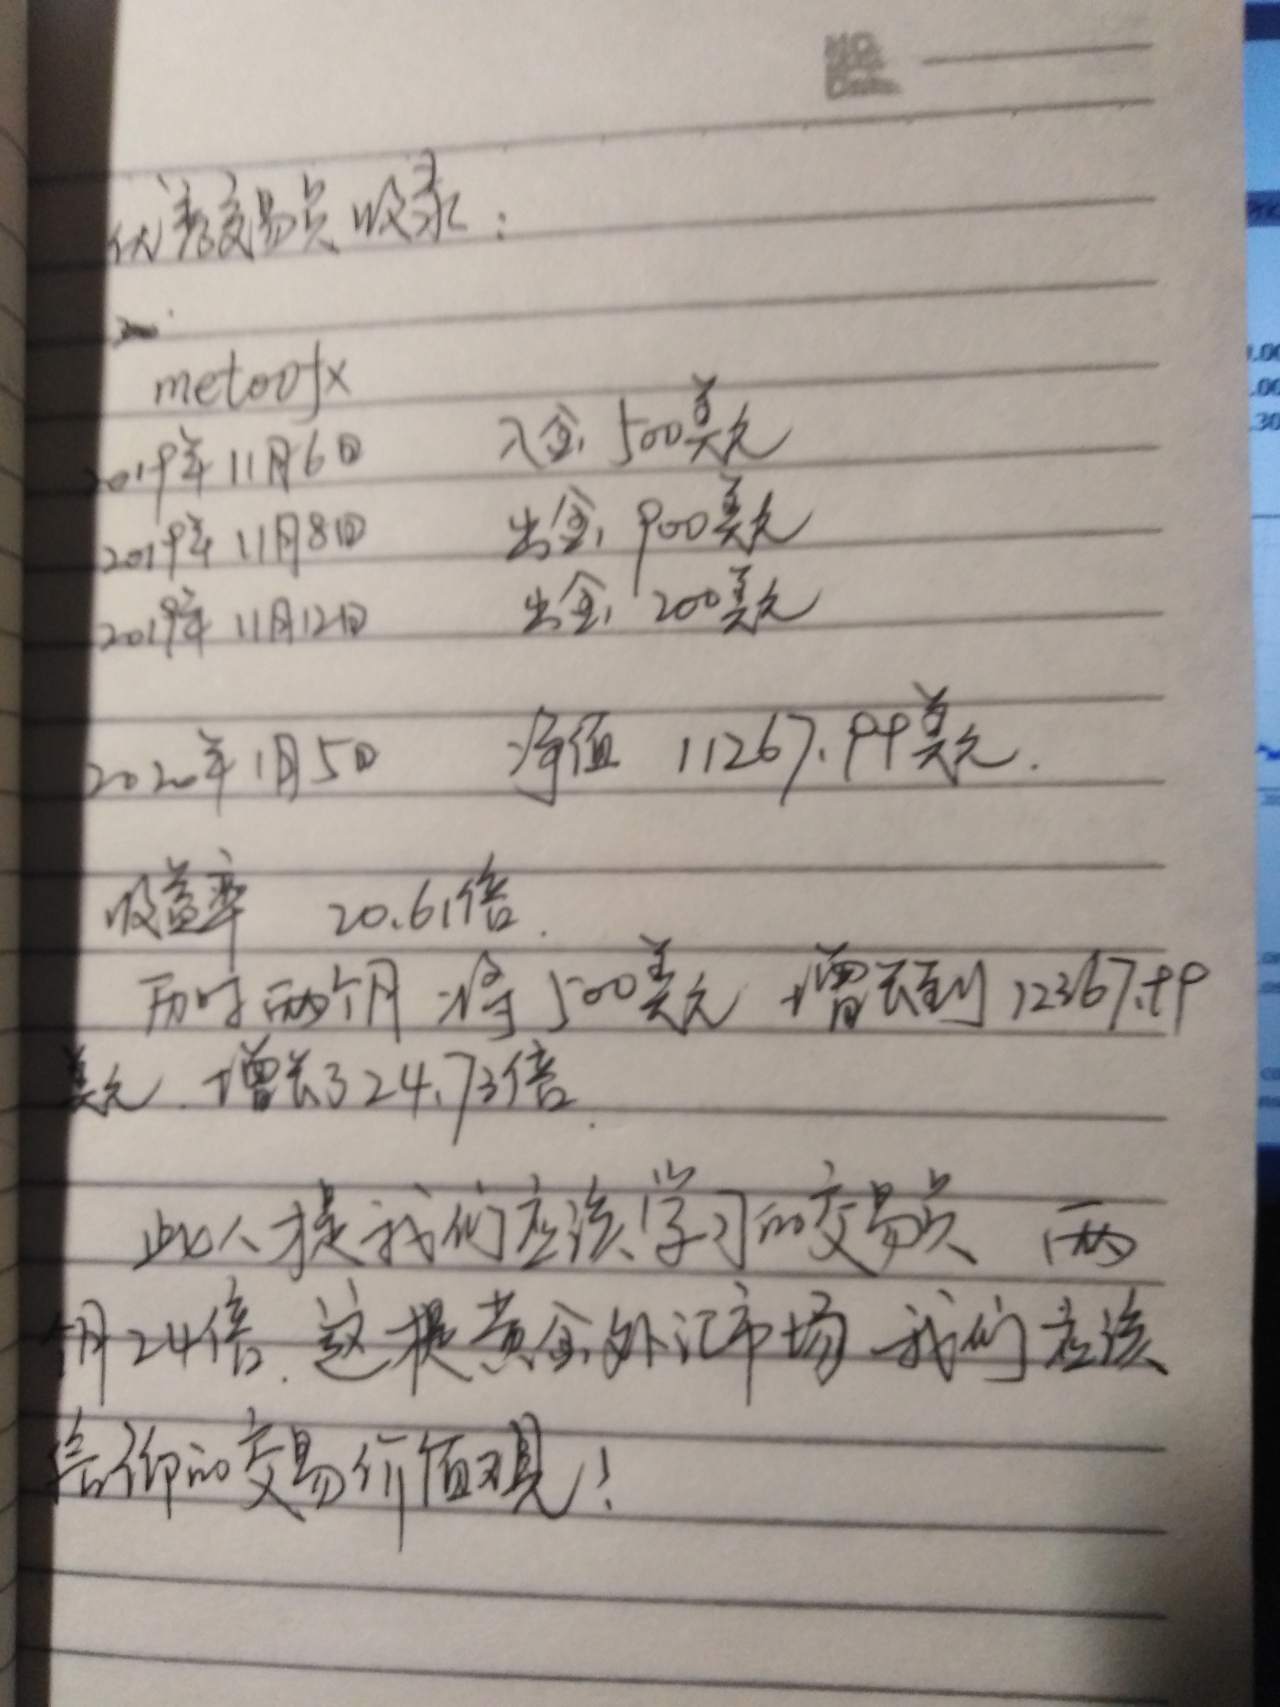 NO.
Date.
优秀交易员收录:
metoofx
2019年11月6日 入金 500美元
2019年11月8日 出金 900美元
2019年11月12日 出金 200美元
2020年1月5日 净值 11267.99美元.
收益率 20.61倍.
历时两个月 将 500美元 增长到 12367.99
美元. 增长了24.73倍.
此人才是我们应该学习的交易员 两
个月24倍. 这才是黄金外汇市场 我们应该
信仰的交易价值观!
.00
.00
.30